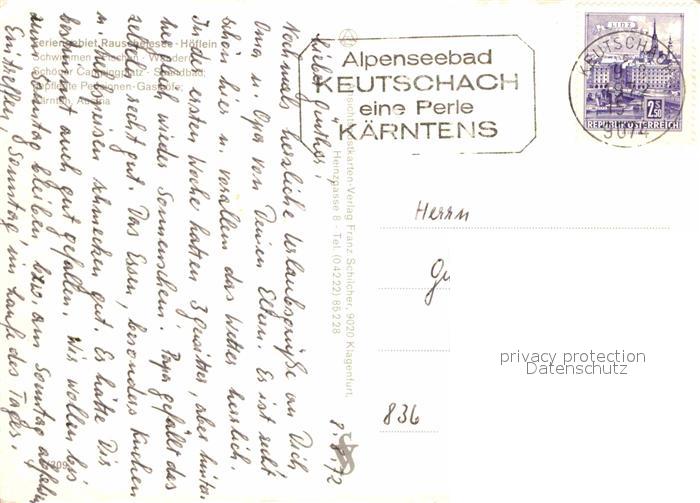 Feriengebiet Rauschelesee - Höflein
Schwimmen - Fischen - Wandern
Schöner Campingplatz - Strandbad;
gepflegte Pensionen - Gasthöfe;
Kärnten, Austria
Alpenseebad
KEUTSCHACH
eine Perle
KÄRNTENS
LINZ
KEUTSCHACH
9074
2.50
REPUBLIK ÖSTERREICH
Ansichtspostkarten-Verlag Franz Schilcher, 9020 Klagenfurt,
Heinzgasse 8 - Tel. (04222) 85 2 28
8. 8. 72
Lieber Günther!
Nochmals herzliche Urlaubsgrüße an Dich
Oma u. Opa von Deinen Eltern. Es ist sehr
schön hier u. vor allem das Wetter herrlich.
In der ersten Woche hatten 3 Gewitter, aber hinter-
her gleich wieder Sonnenschein. Papa gefällt das
auch recht gut. Das Essen, besonders Kuchen
u. schmecken gut. Es hätte Dir
bestimmt auch gut gefallen. Wir wollen bis
zum Sonntag bleiben bzw. am Sonntag abfahren
Eintreffen, Sonntag, im Laufe des Tages.
Herrn
Gu
836
privacy protection
Datenschutz